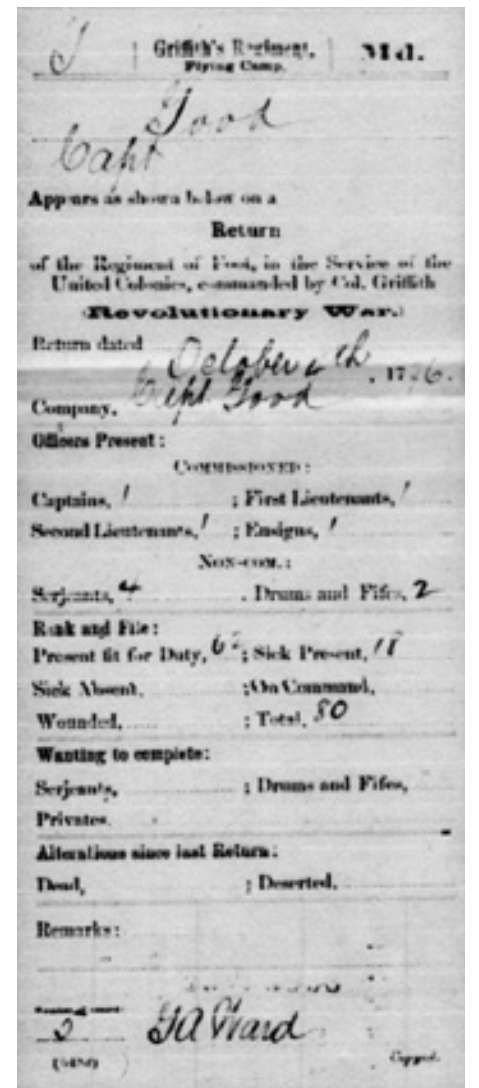 Griffith's Regiment, Md.
Flying Camp.
Good
Capt
Appears as shown below on a
Return
of the Regiment of Foot, in the Service of the
United Colonies, commanded by Col. Griffith
(Revolutionary War.)
Return dated October th, 1776.
Company, Capt Good
Officers Present:
COMMISSIONED:
Captains, 1 ; First Lieutenants, 1
Second Lieutenants, 1 ; Ensigns, 1
NON-COM.:
Serjeants, 4 . Drums and Fifes, 2
Rank and File:
Present fit for Duty, 62 ; Sick Present, 18
Sick Absent, ; On Command,
Wounded, ; Total, 80
Wanting to complete:
Serjeants, ; Drums and Fifes,
Privates.
Alterations since last Return:
Dead, ; Deserted,
Remarks:
GA Ward
Copyist.